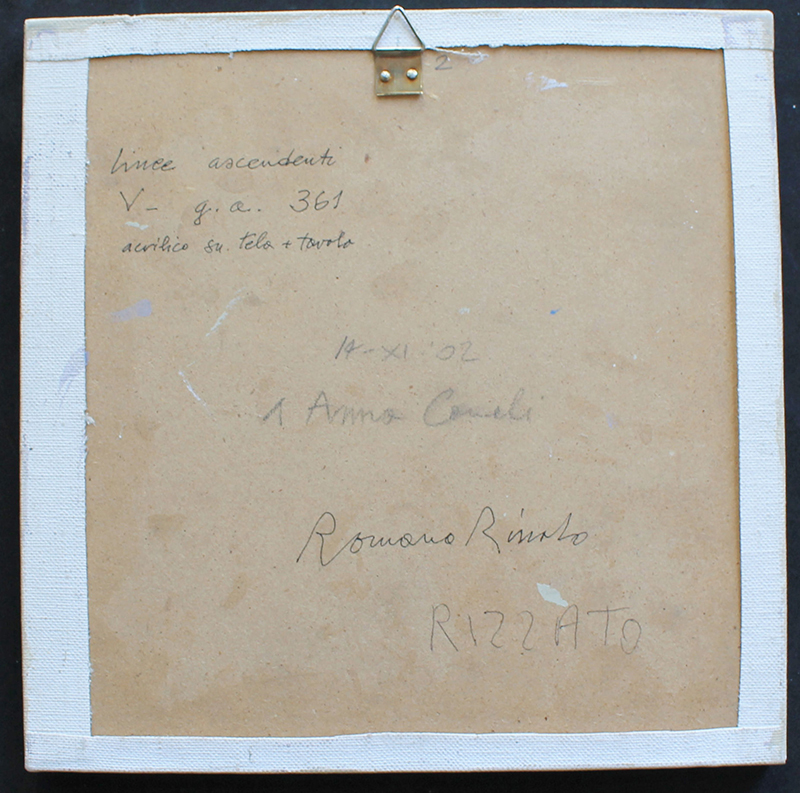 2
linee ascendenti
V - g.a. 361
acrilico su tela + tavola
XI 02
Anna
Romano Rizzato
RIZZATO